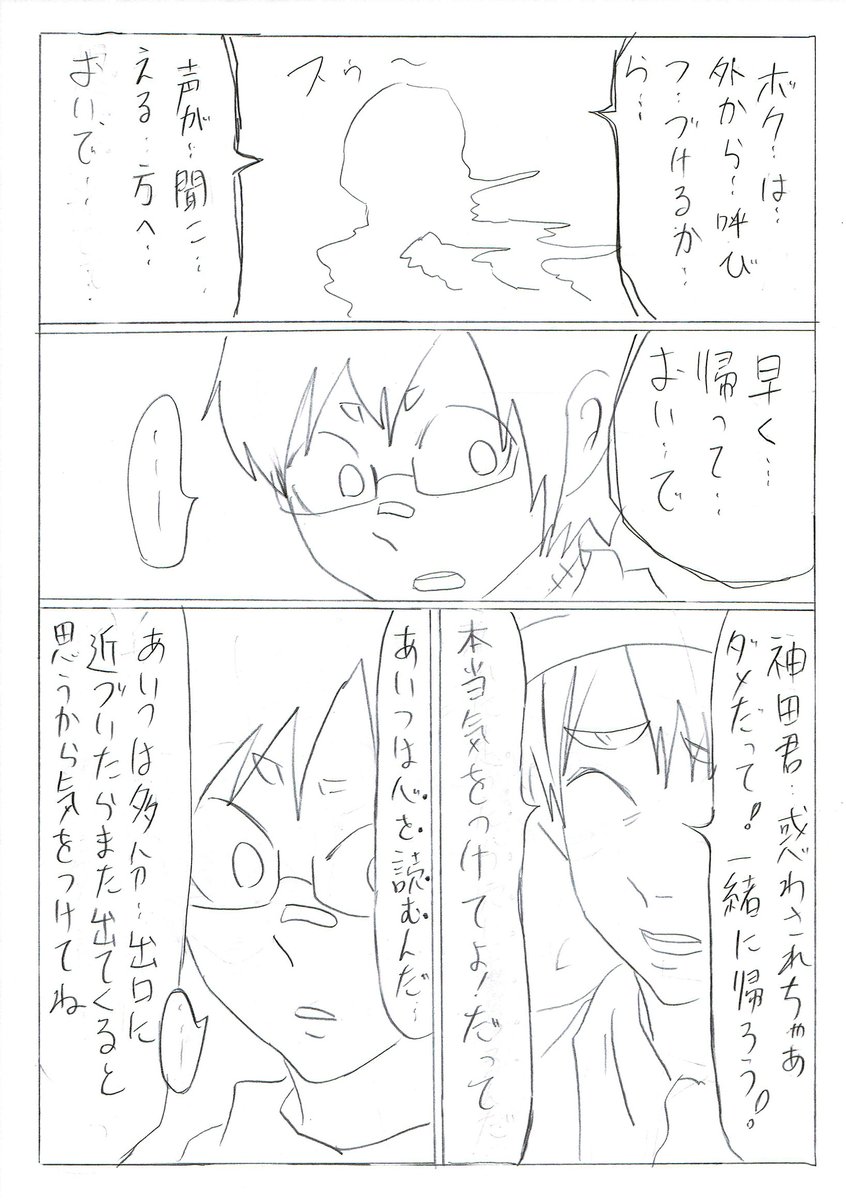 ボク…は…
外から…呼び
つ…づけるか…
ら…
スゥ〜
声が…聞こ…
える…方へ…
おいで…
早く…
帰って…
おい…で
……
神田君…惑わされちゃあ
ダメだって!一緒に帰ろう!
本当気をつけてよ!だって
あいつは心を読むんだ…
あいつは多分…出口に
近づいたらまた出てくると
思うから気をつけてね
……